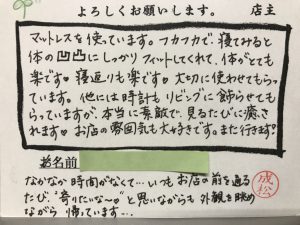 よろしくお願いします。 店主
マットレスを使っています。フカフカで、寝てみると
体の凹凸にしっかりフィットしてくれて、体がとても
楽です♥ 寝返りも楽です♥ 大切に使わせてもらっ
ています。他には時計もリビングに飾らせても
らっていますが、本当に素敵で、見るたびに癒さ
れます♥ お店の雰囲気も大好きです。また行きます!
お名前
成松
なかなか時間がなくて…いつもお店の前を通る
たび、"寄りたいな〜♥"と思いながらも外観を眺め
ながら帰っています…